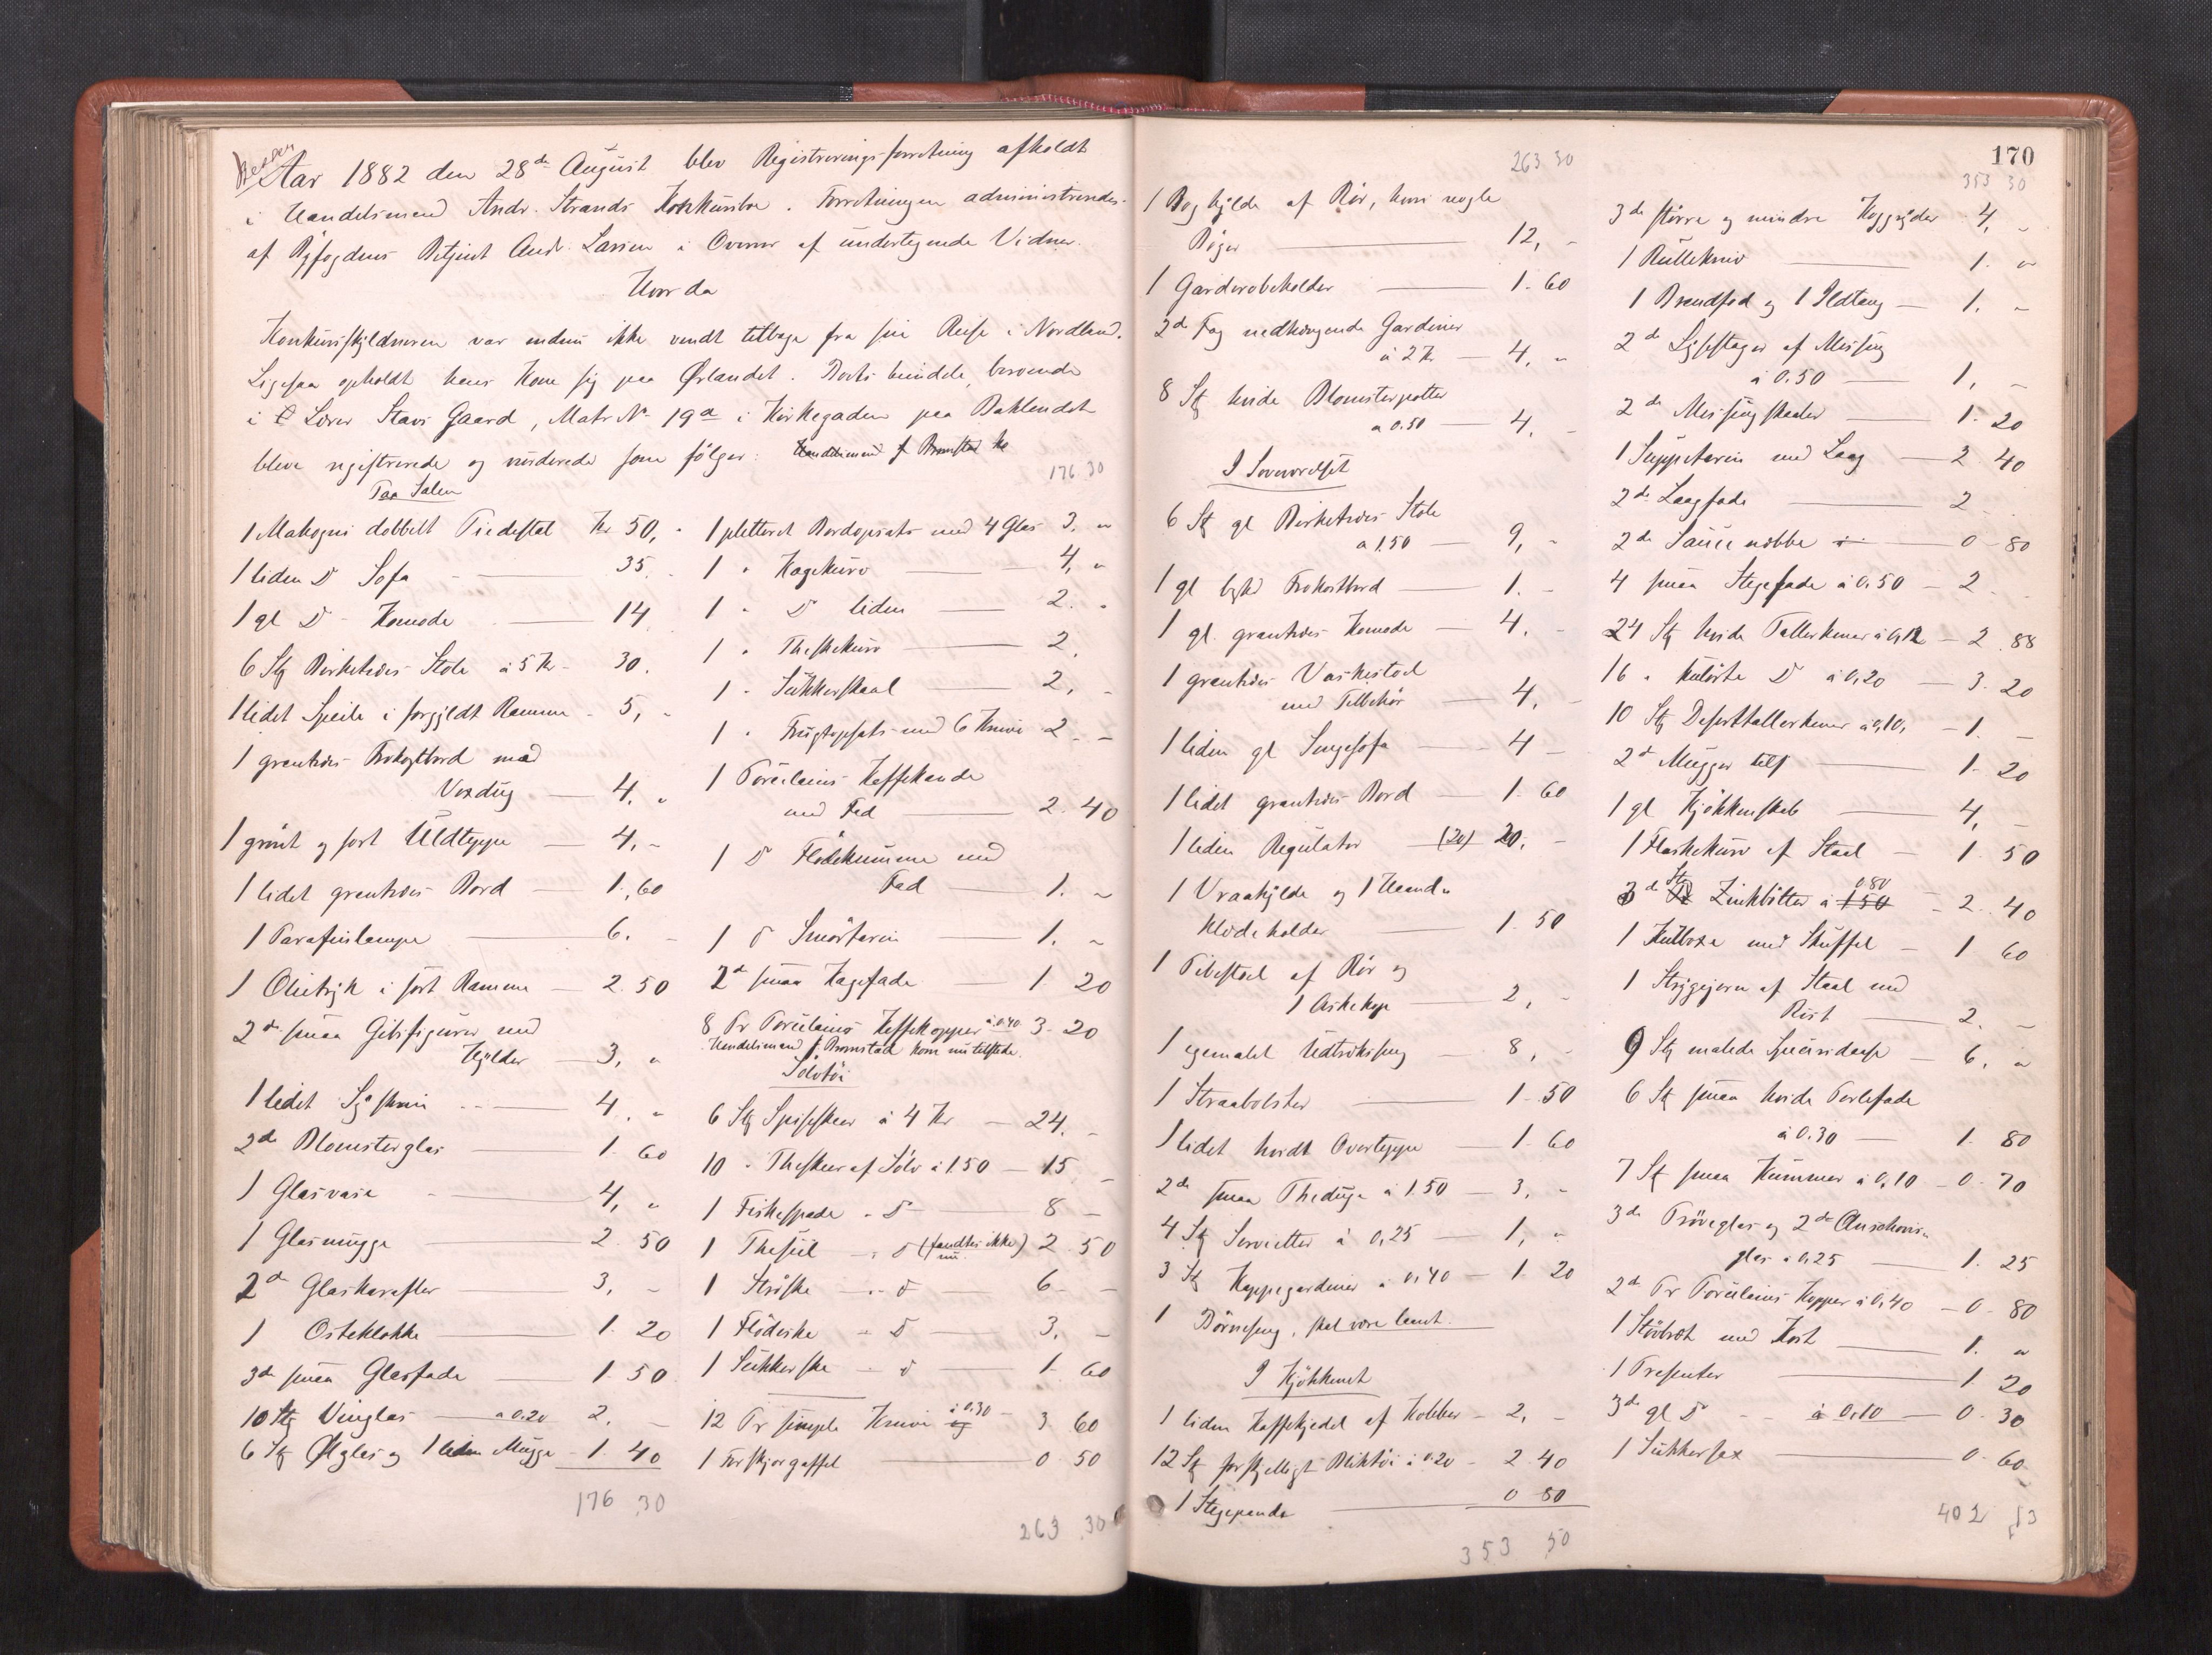 Aar 1882 den 28de August blev Registreringsforretning afholdt
i Handelsmand Andr. Strands Konkursbo. Forretningen administreredes
af Byfogdens Betjent Andr. Larsen i Overvær af undertegnede Vidner.
Hvorda
Konkursskyldneren var endnu ikke vendt tilbage fra sin Reise i Nordland.
Ligesaa opholdt hans Kone sig paa Ørlandet. Boets Eiendele, beroende
i Lærer Stavs Gaard, Matr No 19a i Kirkegaden paa Baklandet
bleve registrerede og vurderede som følger: Handelsmand J Bromstad ko
Paa Salen
1 Mahogni dobbelt Piedestal Kr 50, "
1 liden Do Sofa 35. "
1 gl Do Komode 14
6 Stk Birketræs Stole à 5 Kr 30.
1 lidet Speile i forgyldt Ramme 5, "
1 grantræs Frokostbord med
Voxdug 4, "
1 grønt og sort Uldteppe 4, "
1 lidet grantræs Bord 1.60
1 Parafinlampe 6. "
1 Olietryk i sort Ramme 2.50
2de smaa Gibsfigurer med
Hylder 3, "
1 lidet Syskrin 4, "
2de Blomsterglas 1.60
1 Glasvase 4, "
1 Glasmugge 2.50
2de Glaskarafler 3, "
1 Osteklokke 1.20
3de smaa Glasfade 1.50
10 Stk Vinglas à 0.20 2. "
6 Stk Ølglas og 1 liden Mugge 1.40
176 30
176 30
1 pletteret Bordopsats med 4 Glas 3. "
1 " Kagekurv 4, "
1 " Do liden 2. "
1 " Theskekurv 2.
1 " Sukkerskaal 2, "
1 " Frugtopsats med 6 Knive 2 "
1 Porcelains Kaffekande
med Fad 2.40
1 Do Flødekumme med
Fad 1. "
1 Do Smørterin 1. "
2de smaa Kagefade 1 20
8 Pr Porcelains Kaffekopper à 0.40 3.20
Handelsmand J Bromstad kom nu tilstede.
Sølvtøi
6 Stk Spiseskeer à 4 Kr 24. "
10 " Theskeer af Sølv à 1.50 15 "
1 Fiskespade " Do 8 "
1 Thesiil " Do (fandtes ikke nu) 2.50
1 Strøske " Do 6 "
1 Flødeske " Do 3, "
1 Sukkerske " Do 1.60
12 Pr simple Knive og à 0.30 3.60
1 Forskjærgaffel 0.50
263 30
263 30
1 Boghylde af Rør, hvori nogle
Bøger 12, "
1 Garderobeholder 1.60
2de Fag nedhængende Gardiner
à 2 Kr 4, "
8 Stk hvide Blomsterpotter
à 0.50 4, "
I Soveværelset
6 Stk gl Birketræs Stole
à 1.50 9, "
1 gl Frokostbord 1. "
1 gl. grantræs Komode 4. "
1 grantræs Vaskestol
med Tilbehør 4, "
1 liden gl Sengesofa 4 "
1 lidet grantræs Bord 1.60
1 liden Regulator (20) 20, "
1 Vraahylde og 1 Haand-
klædeholder 1.50
1 Pibestol af Rør og
1 Askekop 2, "
1 egemalet Udtræksseng 8, "
1 Straabolster 1.50
1 lidet hvidt Overteppe 1.60
2de smaa Theduge à 1.50 3, "
4 Stk Servietter à 0,25 1, "
3 Stk Kappegardiner à 0.40 1.20
1 Børneseng, skal være laant.
I Kjøkkenet
1 liden Kaffekjedel af Kobber 2, "
12 Stk forskjelligt Bliktøi à 0.20 2.40
1 Stegepande 0 80
353 50
170
353 30
3de større og mindre Koggryder 4, "
1 Rullekniv 1. "
1 Brandfod og 1 Ildtang 1. "
2de Lysestager af Messing
à 0.50 1, "
2de Messingskaaler 1.20
1 Suppeterin med Laag 2 40
2de Laagfade 2 "
2de Saucenæbbe 0.80
4 smaa Stegefade à 0.50 2 "
24 Stk hvide Tallerkener à 0,12 2.88
16 " kulørte Do à 0,20 3.20
10 Stk Deserttallerkener à 0,10, 1. "
2de Mugger 1.20
1 gl Kjøkkenskab 4, "
1 Flaskekurv af Staal 1.50
3de Stk Zinkbøtter à 1.50 0.80 2.40
1 Kulboxe med Skuffel 1 60
1 Strygejern af Staal med
Rist 2. "
9 Stk malede 6, "
6 Stk smaa hvide Perlefade
à 0.30 1.80
7 Stk smaa Kummer à 0,10 0.70
3de Prøveglas og 2de Anschovis-
glas à 0,25 1.25
2de Pr Porcelains Kopper à 0,40 0.80
1 Støvbræt med Kost 1. "
1 Presenter 1 20
3de gl Do à 0,10 0.30
1 Sukkersax 0.60
402 53